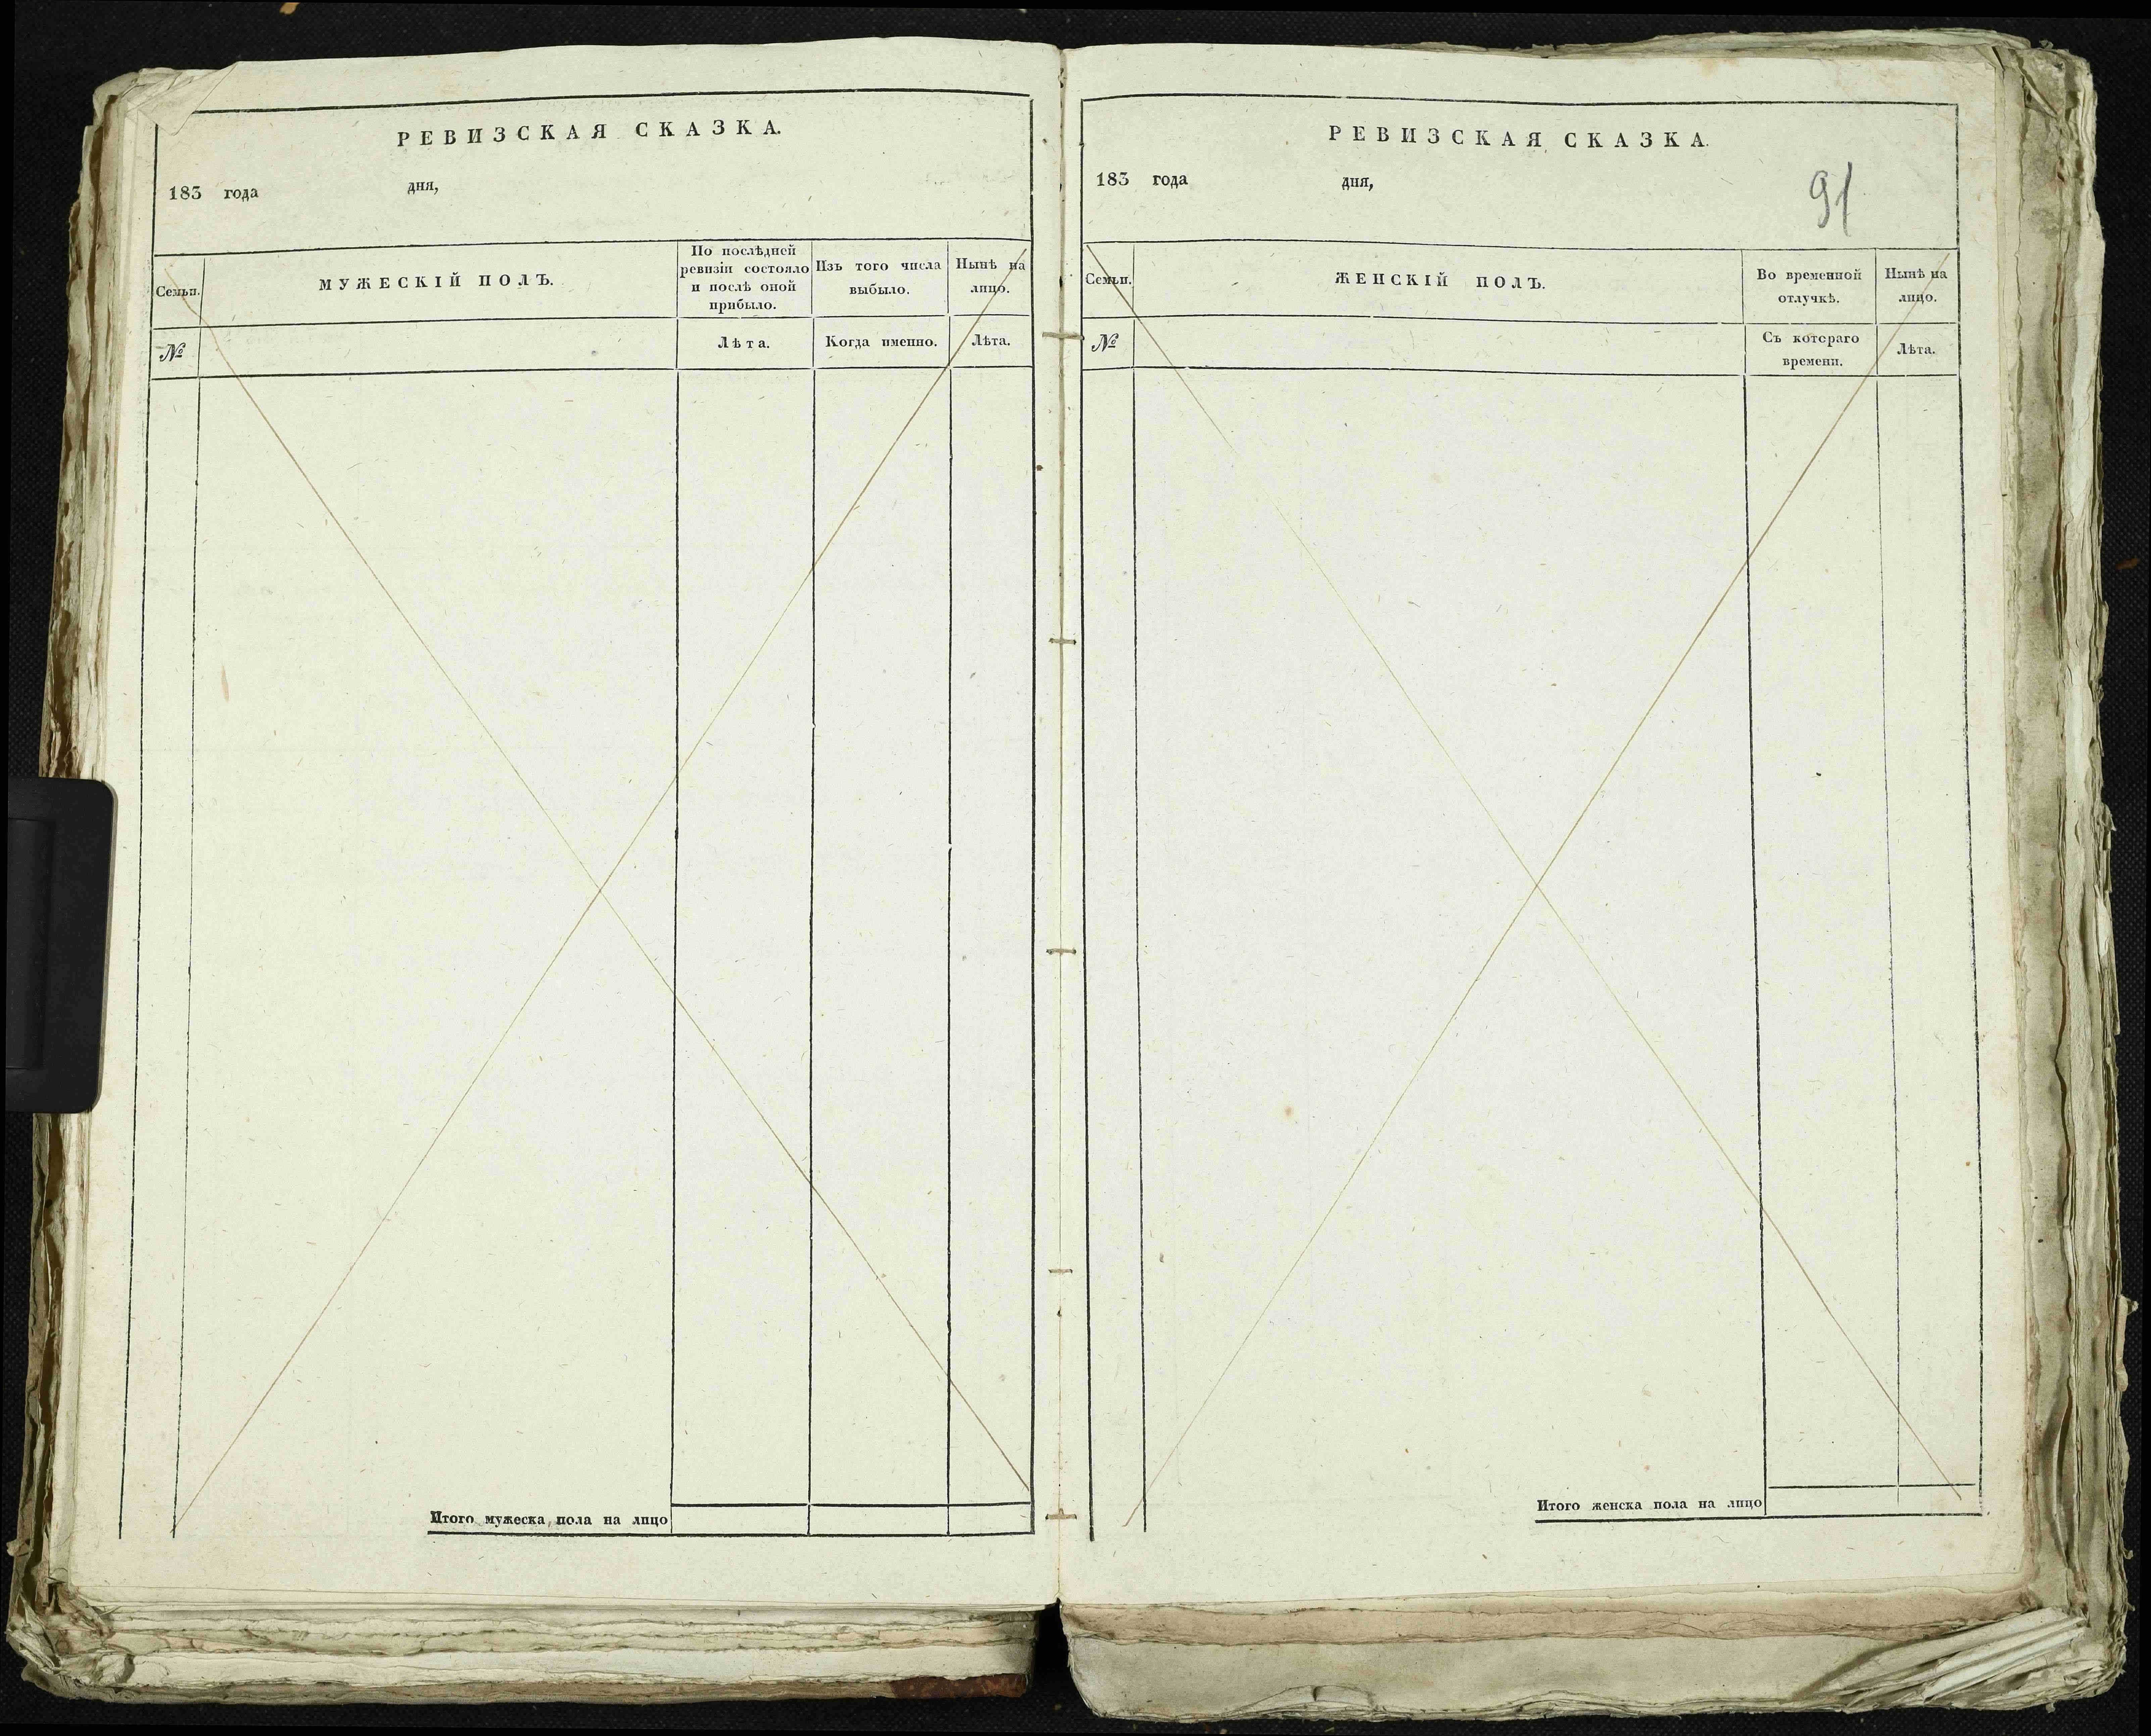 РЕВИЗСКАЯ СКАЗКА.
183 года дня,
Семьи.
МУЖЕСКІЙ ПОЛЪ.
По послѣдней
ревизіи состояло
и послѣ оной
прибыло.
Изъ того числа
выбыло.
Нынѣ на
лицо.
№
Лѣта.
Когда именно.
Лѣта.
Итого мужеска пола на лицо
РЕВИЗСКАЯ СКАЗКА.
183 года дня,
91
Семьи.
ЖЕНСКІЙ ПОЛЪ.
Во временной
отлучкѣ.
Нынѣ на
лицо.
№
Съ котораго
времени.
Лѣта.
Итого женска пола на лицо